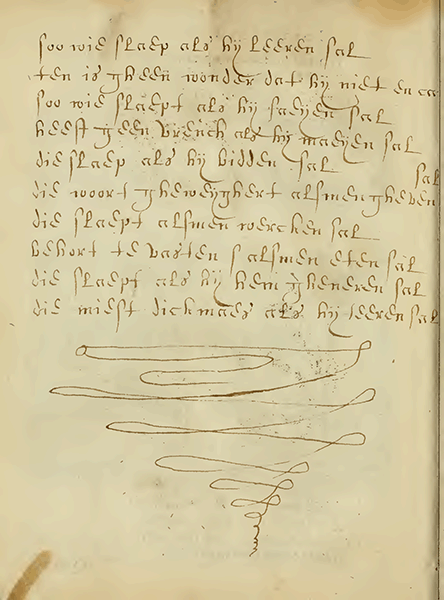 soo wie slaep als hy leeren sal
ten is gheen wonder dat hy niet en ca
soo wie slaept als hy saeyen sal
heeft geen vrench als hy maeyen sal
die slaep als hy bidden sal
die woort gheweyghert alsmen gheven sal
die slaept alsmen wercken sal
behort te vasten s alsmen eten sal
die slaept als hy hem gheneren sal
die miest dickmaes als hy leeren sal